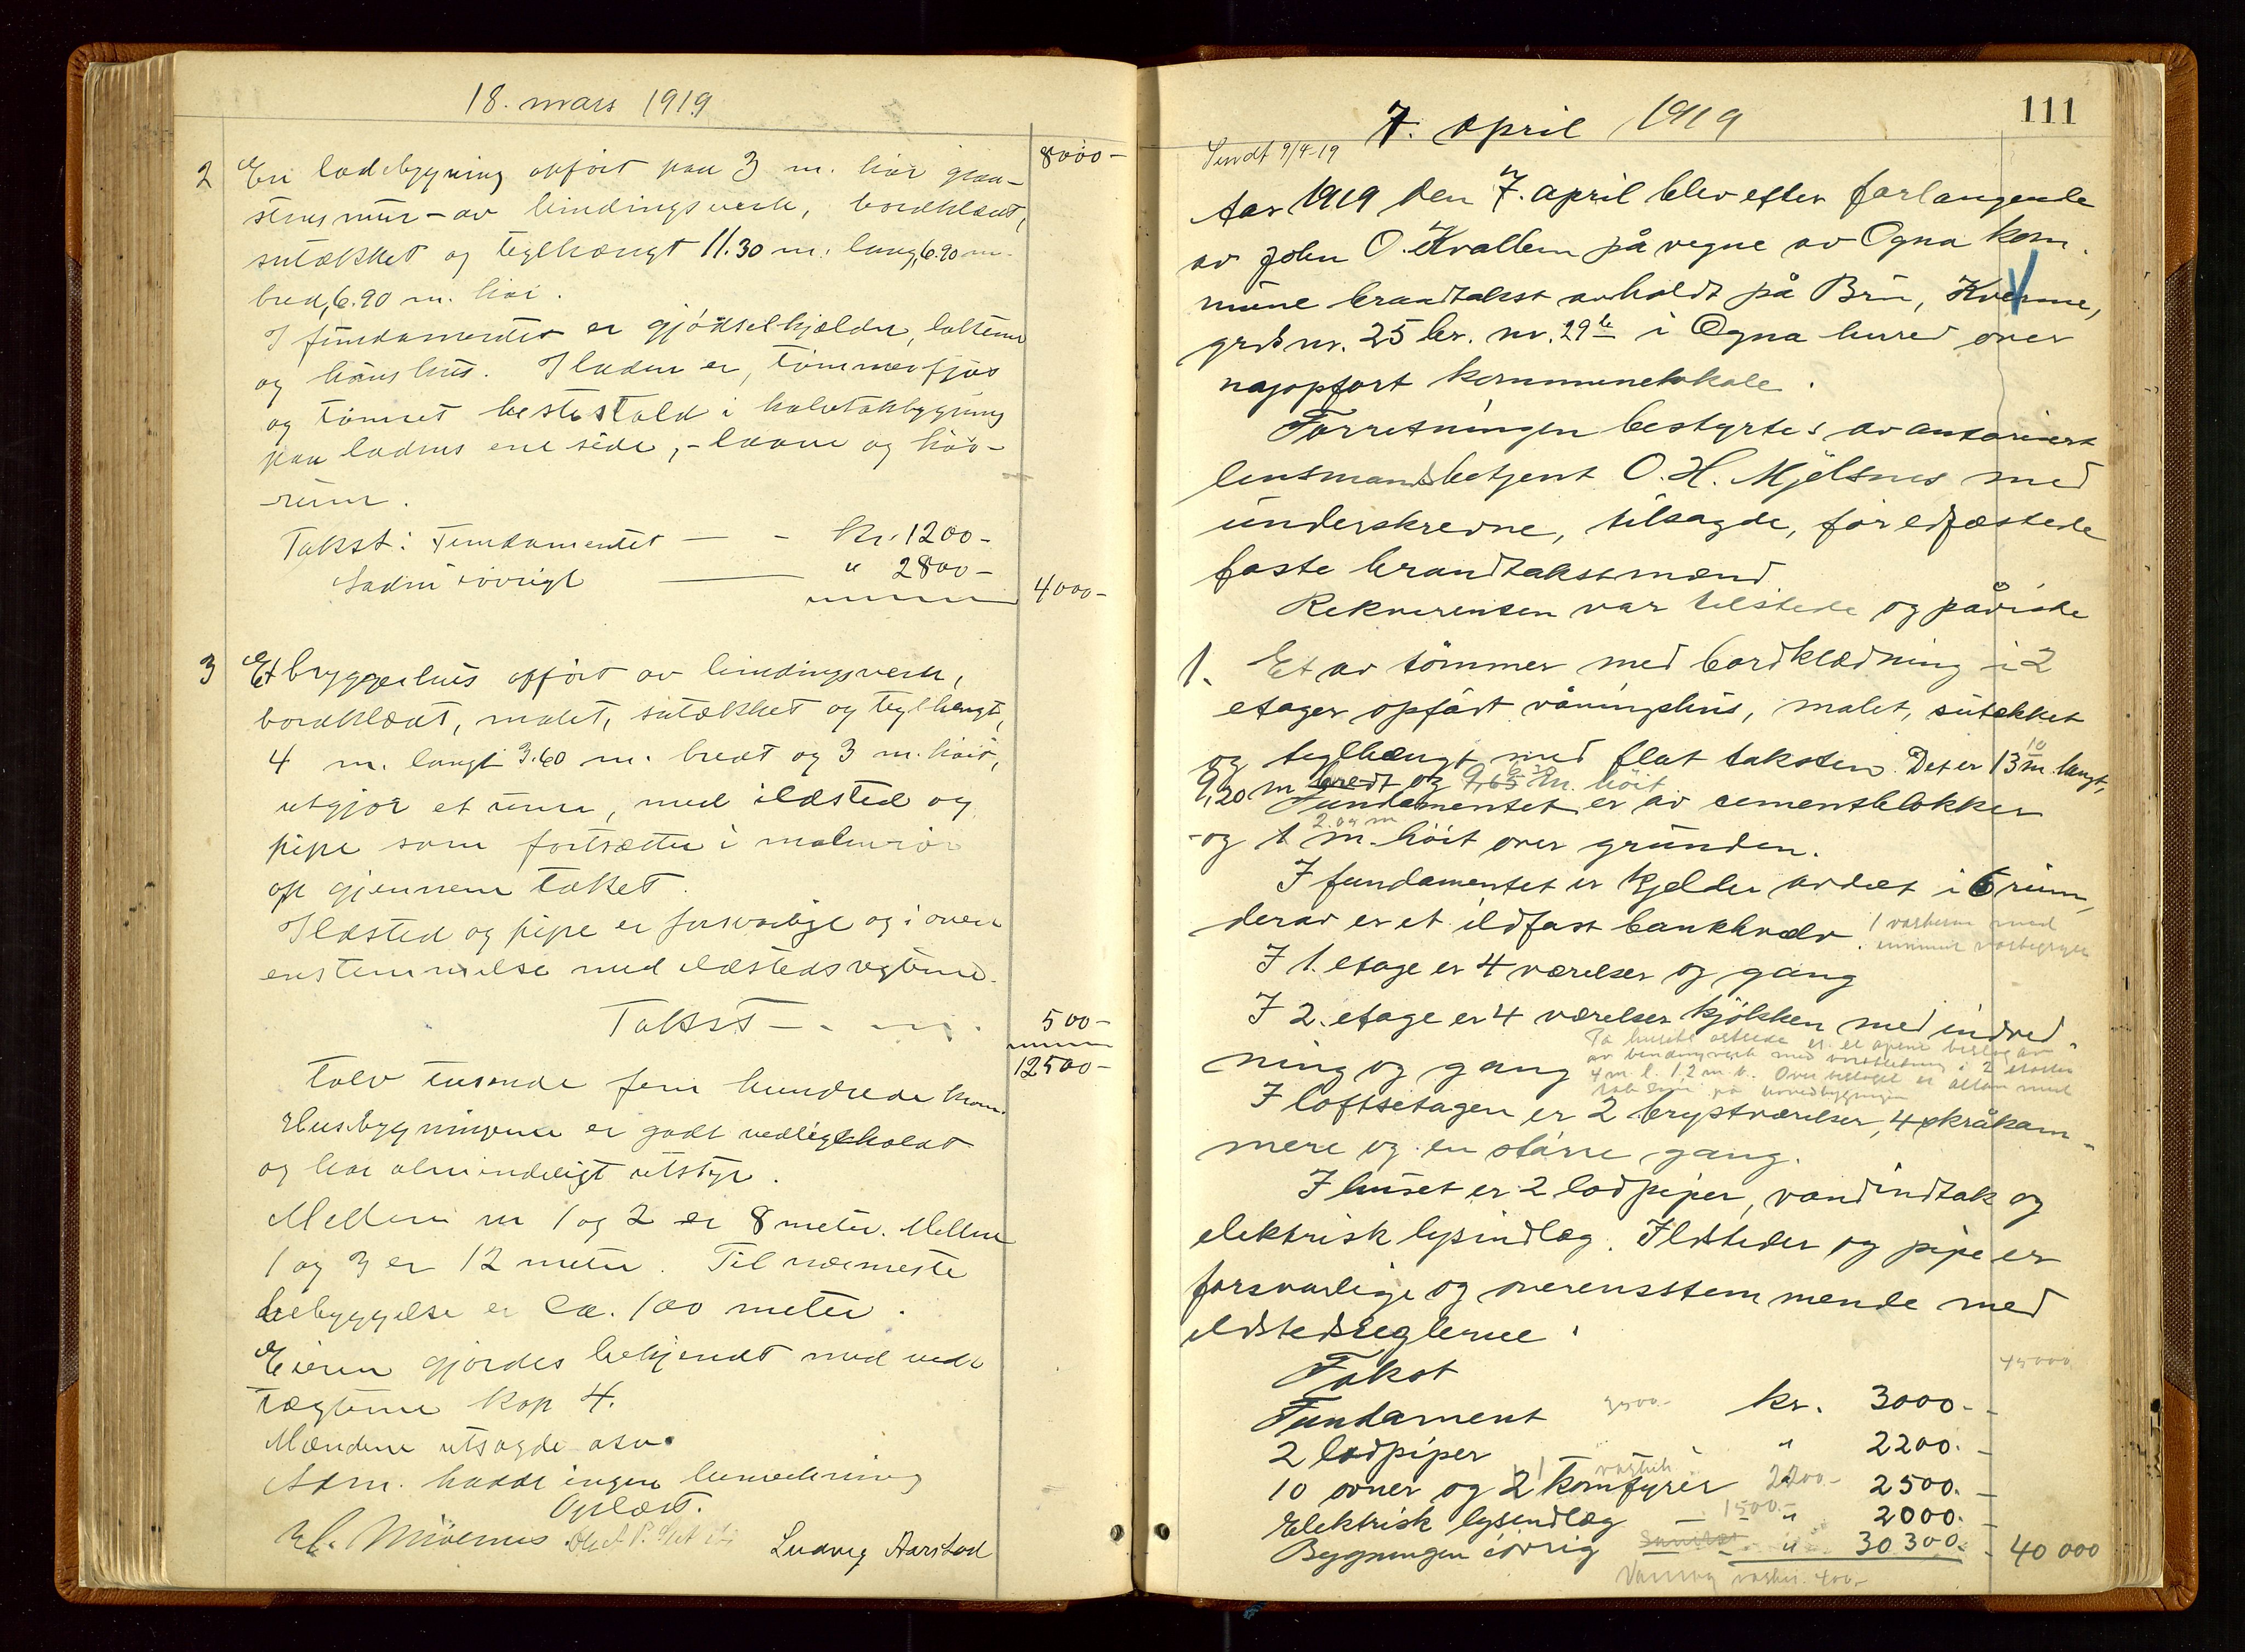 18. mars 1919
8000-
2 En ladebygning opført paa 3 m. høi graa-
stensmur - av bindingsverk, bordklædt,
sutækket og teglhængt 11.30 m. lang, 6.90 m.
bred, 6.90 m. høi.
I fundamentet er gjødselkjælder,
og hønshus. I laden er, tømmerfjøs
og tømret hestestald i halvtakbygning
paa ladens ene side, - laave og høi-
rum.
Takst: Fundamentet - - kr. 1200-
Laden iøvrigt " 2800-
4000-
3 Et bryggerhus opført av bindingsverk,
bordklædt, malet, sutækket og teglhængt,
4 m. langt 3.60 m. bredt og 3 m. høit,
utgjør et rum, med ildsted og
pipe som fortsætter i malmrør
op gjennem taket.
Ildsted og pipe er forsvarlige og i over
enstemmelse med ildstedsreglerne.
Takst - - 500-
12500-
Tolv tusende fem hundrede kron.
Husbygningerne er godt vedlikeholdt
og har almindeligt utstyr.
Mellem nr 1 og 2 er 8 meter. Mellem
1 og 3 er 12 meter. Til nærmeste
bebyggelse er ca. 100 meter.
Eieren gjordes bekjendt med ved-
tægterne kap 4.
Mændene utsagde osv.
Adm. hadde ingen bemerkning
Oplæst.
Ludvig Aarstad
111
7. april 1919
Sendt 9/4-19
Aar 1919 den 7. april blev efter forlangende
av John O. Kvalbein på vegne av Ogna kom-
mune brandtakst avholdt på Bru, Kvame,
grds nr. 25 br. nr. 29 i Ogna herred over
nyopført kommunelokale.
Forretningen bestyrtes av autorisert
lensmandsbetjent O. H. Mjølsnes med
underskrevne, tilsagde, før edfæstede
faste brandtakstmænd.
Rekvirenten var tilstede og påviste
1. Et av tømmer med bordklædning i 2
etager opført våningshus, malet, sutækket
og teglhængt med flat taksten. Det er 13 10 m. langt,
9,20 m bredt og 9,65 m. høit.
Fundamentet er av cementblokker
2.09 m
- og 1 m. høit over grunden.
I fundamentet er kjelder avdelt i 6 rum,
derav er et ildfast bankhvælv. 1 vaskerum med
indmuret vaskegryte
I 1. etage er 4 værelser og gang
I 2. etage er 4 værelser kjøkken med indred-
ning og gang
På husets østside er et åpent bislag av
av bindingsverk med bordklædning i 2 etasjer
4 m l. 1,2 m b. Over bislaget er altan med
tak som på hovedbygningen
I loftsetagen er 2 brystværelser, 4 skråkam-
mere og en større gang.
I huset er 2 lodpiper, vandindtak og
elektrisk lysindlæg. Ildsteder og pipe er
forsvarlige og overensstemmende med
ildstedsreglerne.
Takst 45000
Fundament 3500- kr. 3000.-
2 lodpiper " 2200.-
10 ovner og 2 komfyrer 2200- 2500.-
Elektrisk lysindlæg 1500.- " 2000.-
Bygningen iøvrig " 30300.- 40 000
400-